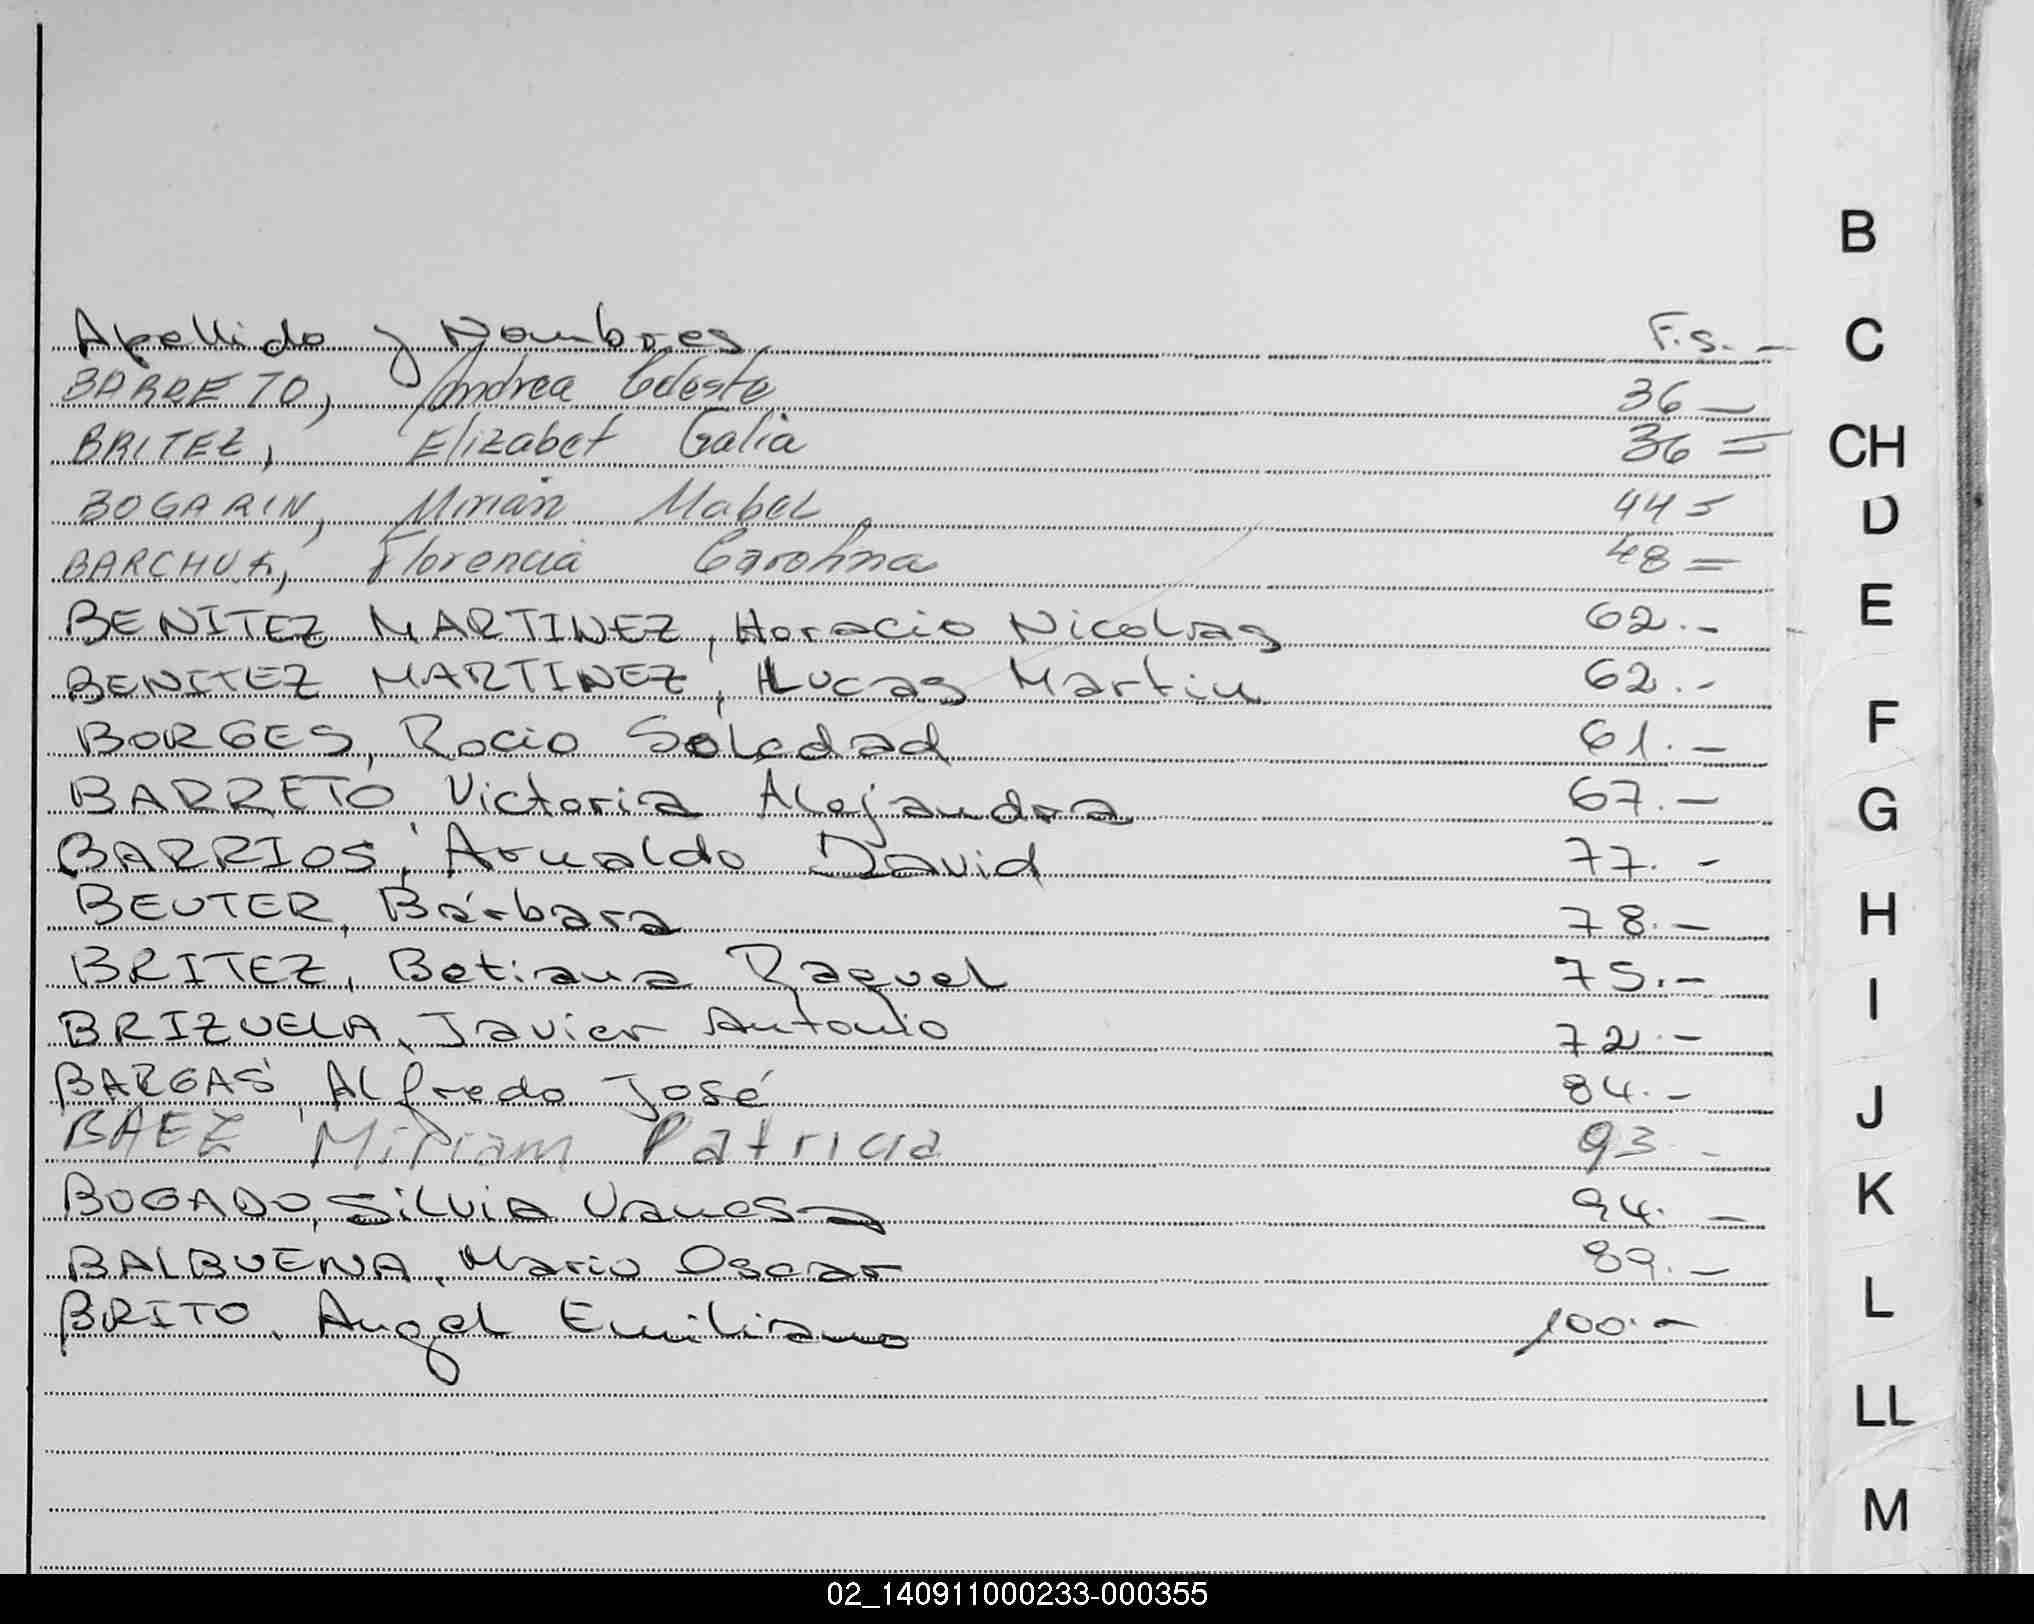 B
C
CH
D
E
F
G
H
I
J
K
L
LL
M
Apellido y Nombres F.s. -
BARRETO, Andrea Celeste 36 -
BRITEZ, Elizabet Galia 36 =
BOGARIN, Mirian Mabel 44 =
BARCHUK, Florencia Carolina 48 =
BENITEZ MARTINEZ, Horacio Nicolas 62.-
BENITEZ MARTINEZ, Lucas Martin 62.-
BORGES, Rocio Soledad 61.-
BARRETO, Victoria Alejandra 67.-
BARRIOS, Arnaldo David 77.-
BEUTER, Bárbara 78.-
BRITEZ, Betiana Raquel 75.-
BRIZUELA, Javier Antonio 72.-
BARGAS, Alfredo José 84.-
BAEZ Miriam Patricia 93 -
BOGADO, Silvia Vanesa 94.-
BALBUENA, Mario Oscar 89.-
BRITO, Angel Emiliano 100.-
02_140911000233-000355